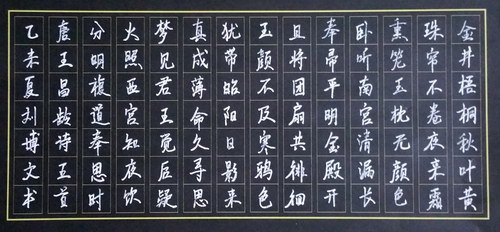 金井梧桐秋叶黄
珠帘不卷夜来霜
熏笼玉枕无颜色
卧听南宫清漏长
奉帚平明金殿开
且将团扇共徘徊
玉颜不及寒鸦色
犹带昭阳日影来
真成薄命久寻思
梦见君王觉后疑
火照西宫知夜饮
分明複道奉恩时
唐王昌龄诗五首
乙未夏刘博文书